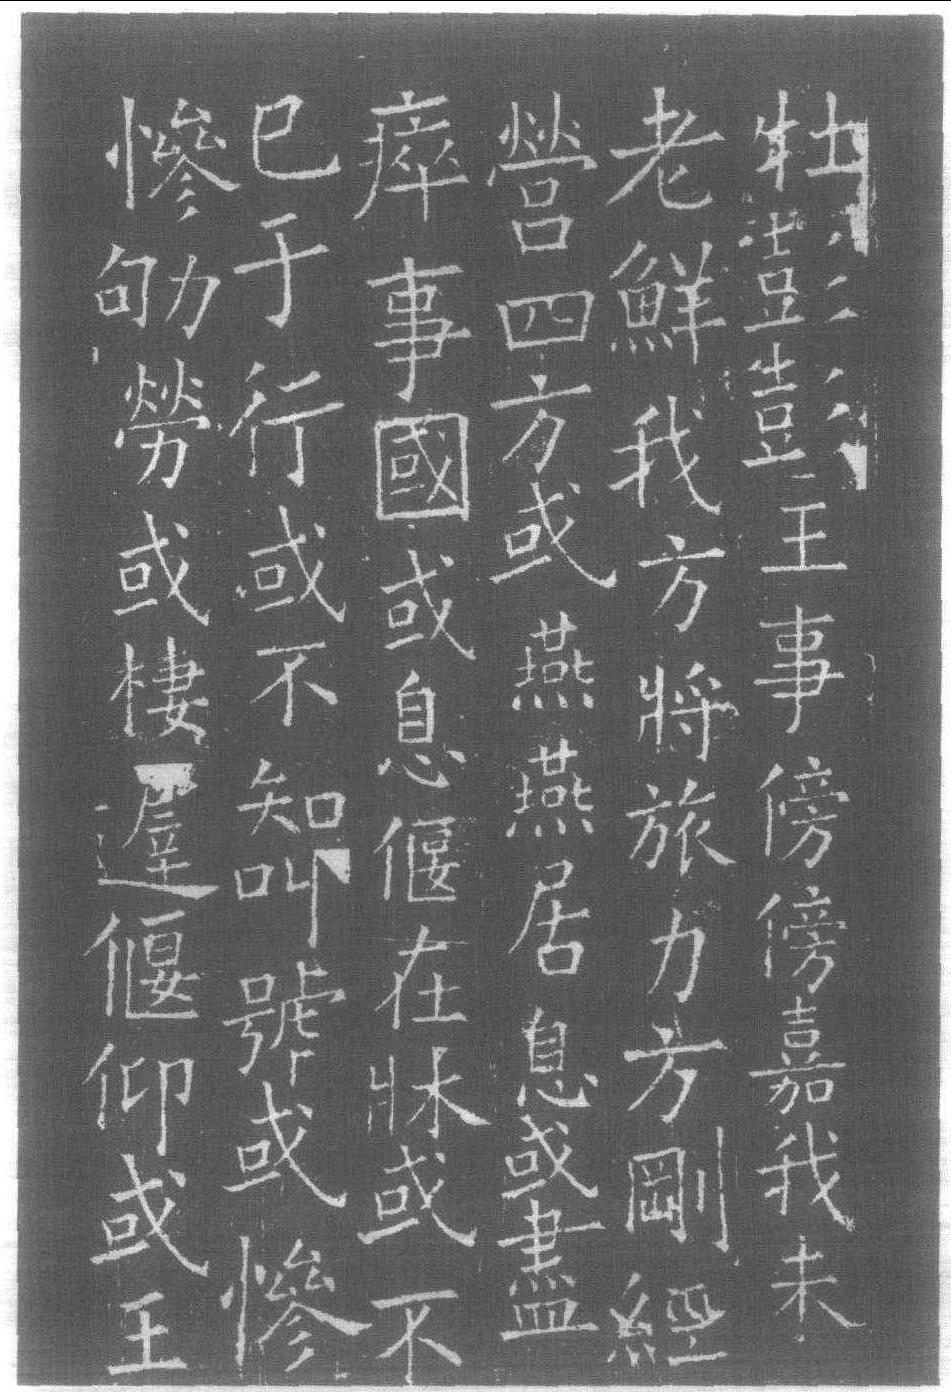 牡彭彭王事傍傍嘉我未
老鮮我方將旅力方剛經
營四方或燕燕居息或盡
瘁事國或息偃在牀或不
已于行或不知叫號或慘
慘劬勞或棲遲偃仰或王